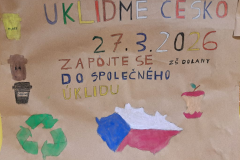 UKLIĎME ČESKO
27.3.2026
ZAPOJTE SE ZŠ DOLANY
DO SPOLEČNÉHO
ÚKLIDU